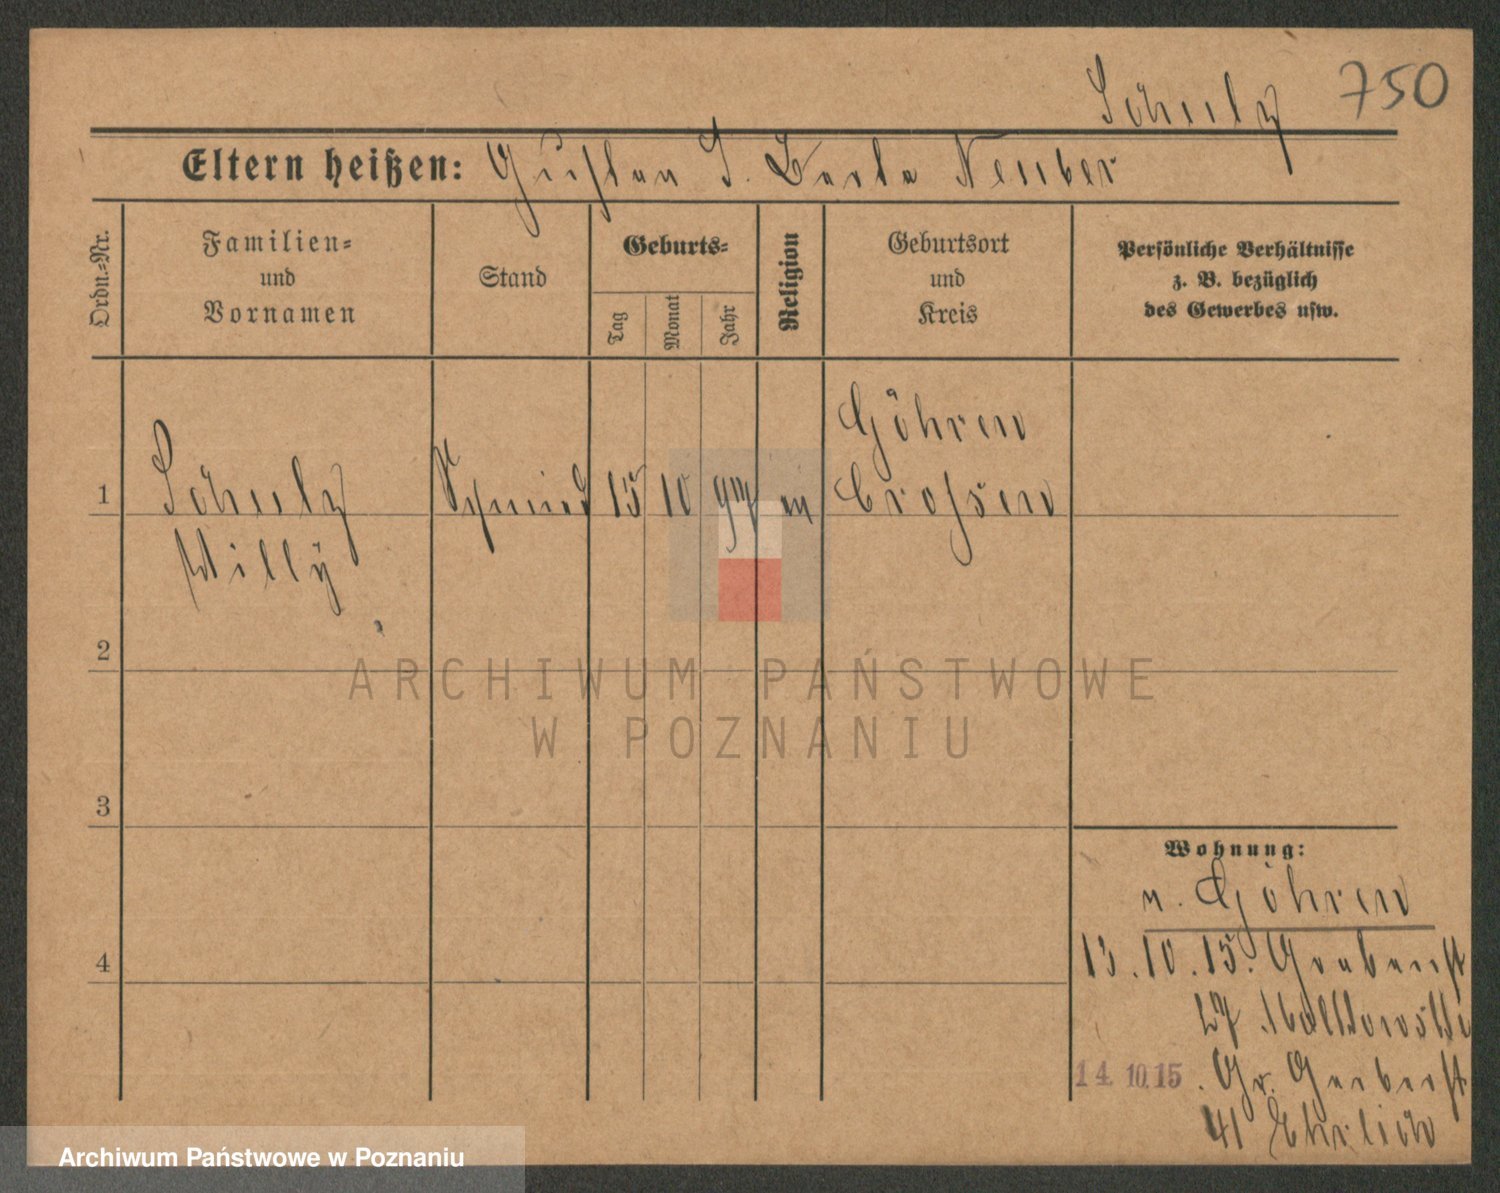 Schulz 750
Eltern heißen: Gustav S. Berta Neuber
Ordn.=Nr.
Familien=
und
Vornamen
Stand
Geburts=
Tag
Monat
Jahr
Religion
Geburtsort
und
Kreis
Persönliche Verhältnisse
z. B. bezüglich
des Gewerbes usw.
Göhren
1 Schulz Schmied 15 10 97 Crossen
Willy
2
3
4
Wohnung:
v. Göhren
13.10.15. Grabenst
27
14.10.15 . Gr. Gerberst
41 Ehrlich
ARCHIWUM PAŃSTWOWE
W POZNANIU
Archiwum Państwowe w Poznaniu